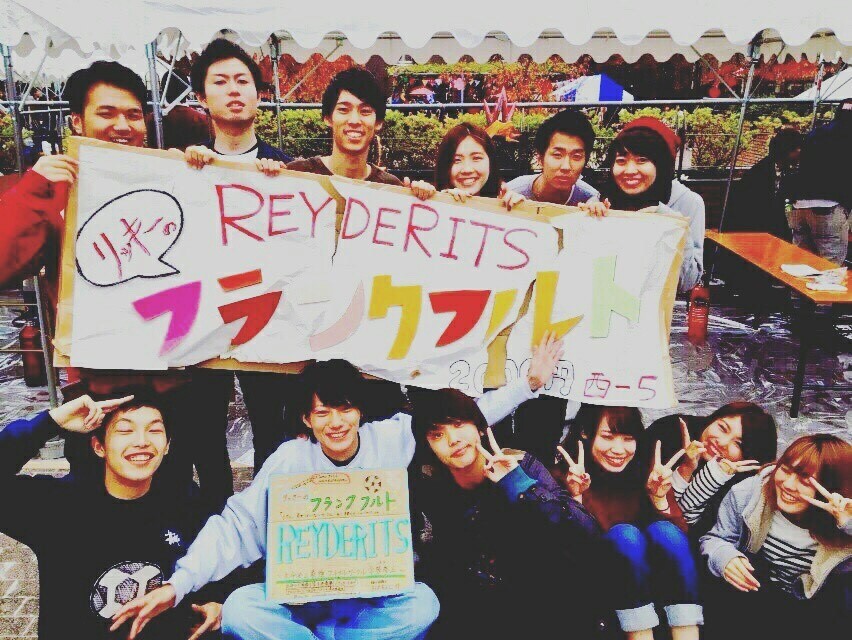 リッキーの
REYDERITS
フランクフルト
200円 西-5
フランクフルト
REYDERITS